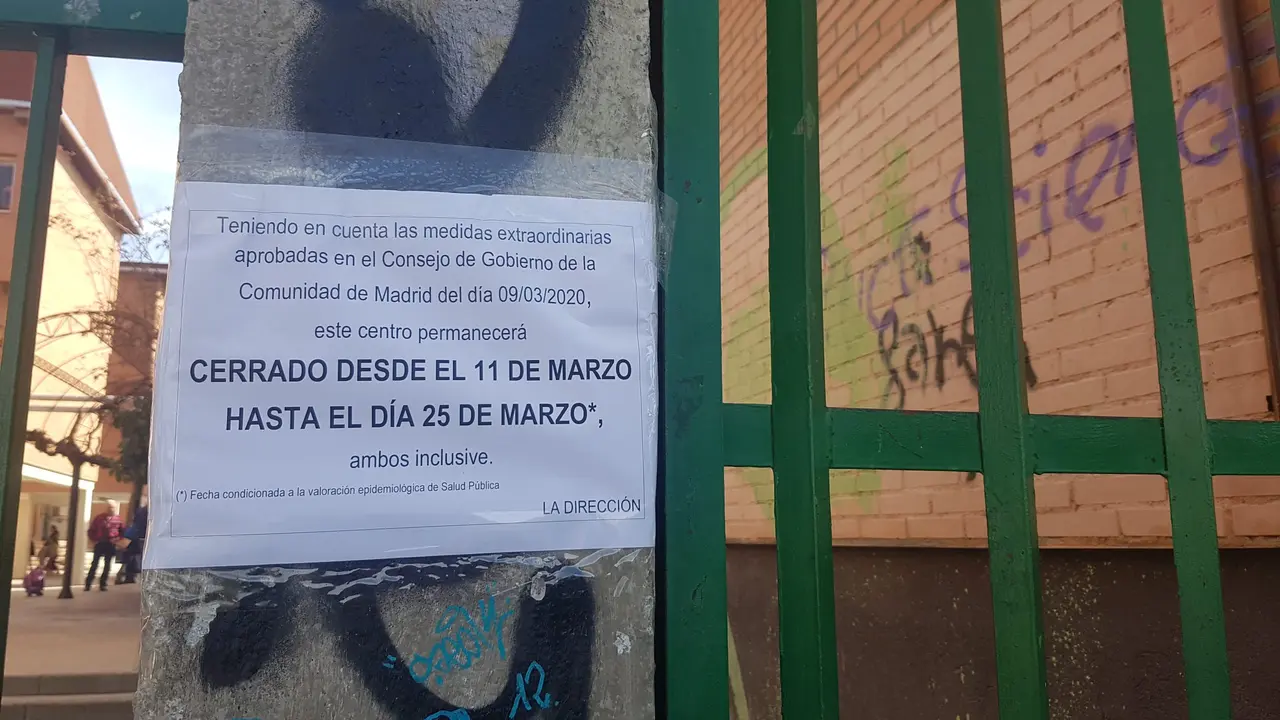 Teniendo en cuenta las medidas extraordinarias
aprobadas en el Consejo de Gobierno de la
Comunidad de Madrid del día 09/03/2020,
este centro permanecerá
CERRADO DESDE EL 11 DE MARZO
HASTA EL DÍA 25 DE MARZO*,
ambos inclusive.
(*) Fecha condicionada a la valoración epidemiológica de Salud Pública
LA DIRECCIÓN
12